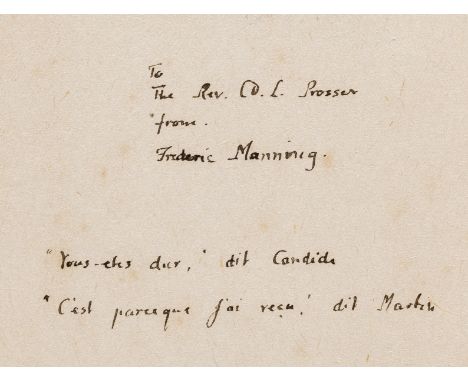 To
The Rev. D. L. Prosser
from.
Frederic Manning.
"Vous-etes dur," dit Candide
"C'est parceque j'ai vecu," dit Martin